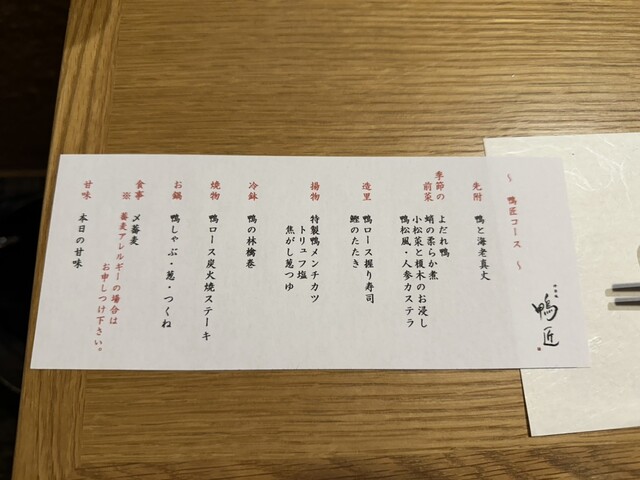 ～ 鴨匠コース ～
先附
鴨と海老真丈
季節の
前菜
よだれ鴨
蛸の柔らか煮
小松菜と榎木のお浸し
鴨松風・人参カステラ
造里
鴨ロース握り寿司
鰹のたたき
揚物
特製鴨メンチカツ
トリュフ塩
焦がし葱つゆ
冷鉢
鴨の林檎巻
焼物
鴨ロース炭火焼ステーキ
お鍋
鴨しゃぶ・葱・つくね
食事
〆蕎麦
※ 蕎麦アレルギーの場合は
お申しつけ下さい。
甘味
本日の甘味
鴨匠